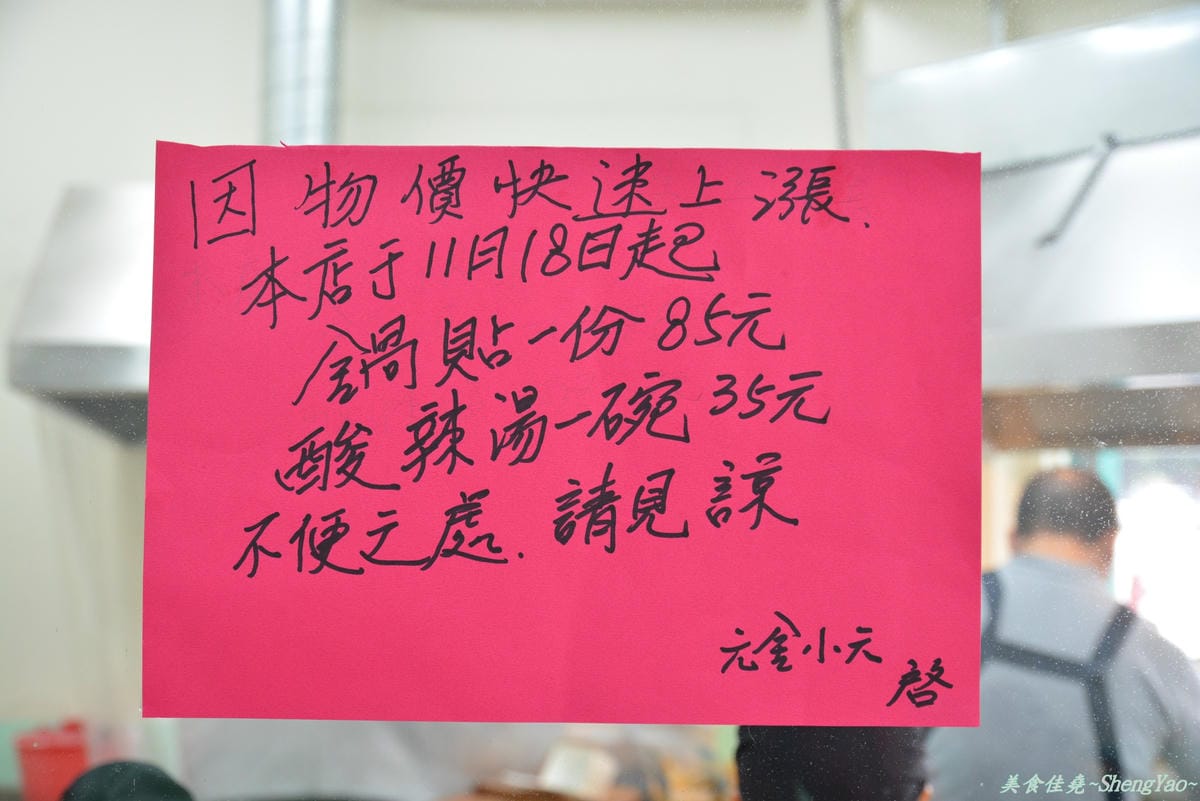 因物價快速上漲.
本店于11月18日起
鍋貼一份85元
酸辣湯一碗35元
不便之處.請見諒
元金小元
啓
美食佳堯~ShengYao~